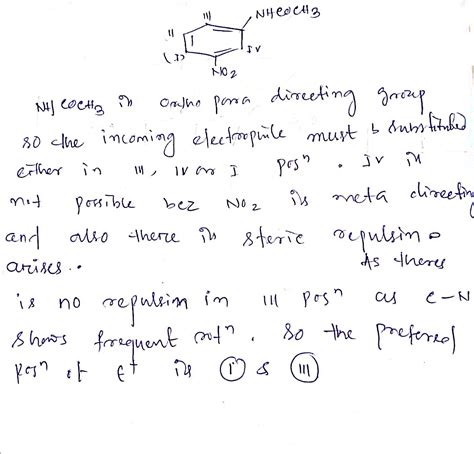 III
NHCOCH3
II
(I)
IV
NO2
NHCOCH3 is ortho para directing group
so the incoming electrophile must b substituted
either in III, IV or I posn. IV is
not possible bez NO2 is meta directin
and also there is steric repulsin
arises.. As theres
is no repulsin in III posn as C-N
shows frequent rotn. So the preferred
posn of E+ is I & III